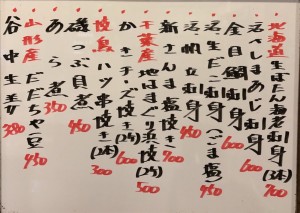 北海道生ぼたん海老刺身(3本) 700
活〆しまあじ刺身 600
金目鯛刺身 600
活だこ刺身(ごま塩) 450
活帆立刺身 450
新さんま塩焼き 700
千葉産地はまぐり浜焼き(2ヶ) 500
かきチーズ焼き(2ケ) 600
焼鳥ハツ串焼き(2本) 300
磯つぶ貝煮 450
あら煮 350
山形産だだちゃ豆 450
谷中生姜 380